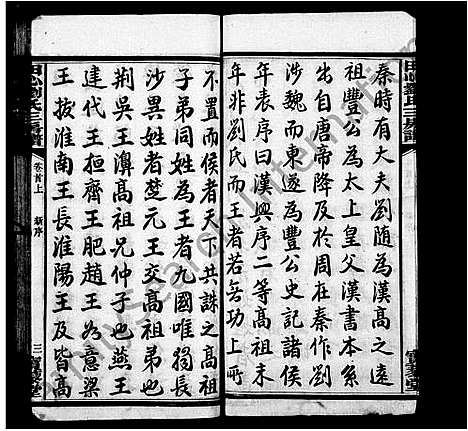 秦時有大夫劉隨為高之遠
祖豐公為太上皇父漢書本系
出自唐帝降及於周在秦作劉
涉魏而東遂為豐公史記諸侯
年表序曰漢興序二等高祖末
年非劉氏而王者若無功上所
不置而侯者天下共誅之高祖
子弟同姓為王者九國唯獨長
沙異姓者楚元王交高祖弟也
荊吳王濞高祖兄仲子也燕王
建代王桓齊王肥趙王如意梁
王拔淮南王長淮陽王及皆高
卷首上
新序
三